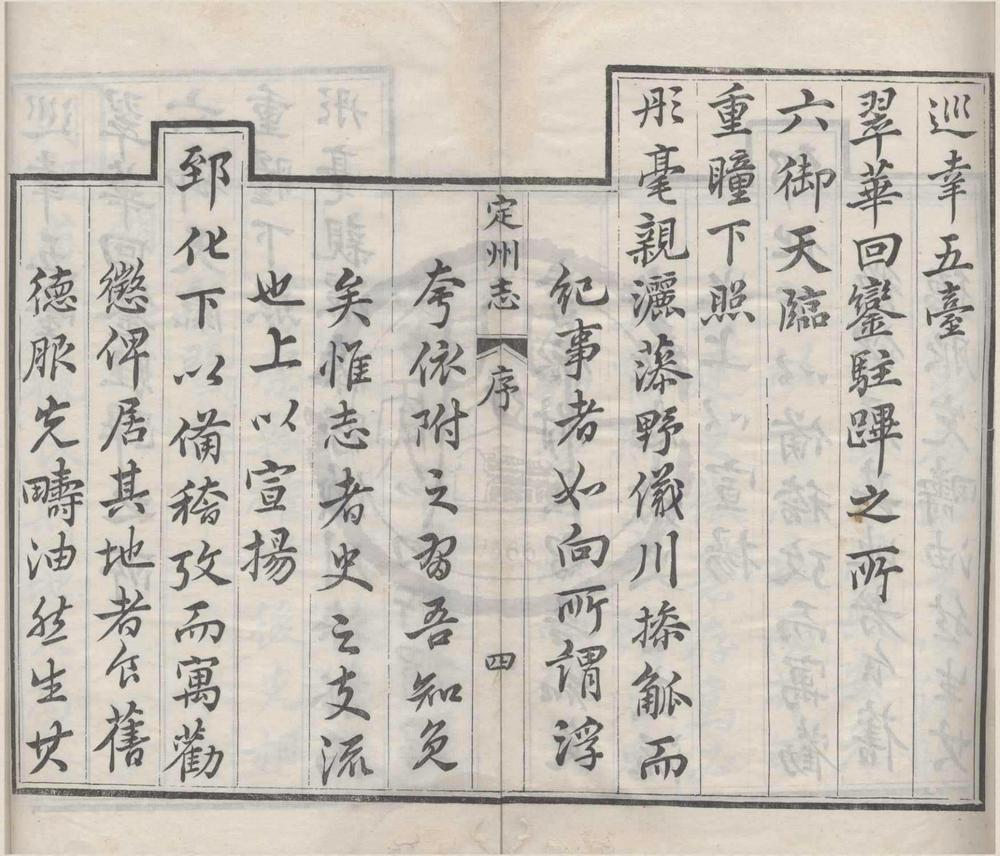 巡幸五臺
翠華回鑾駐蹕之所
六御天臨
重瞳下照
彤毫親灑藻野儀川搽觚而
紀事者如向所謂浮
夸依附之習吾知免
矣惟志者史之支流
也上以宣揚
郅化下以備稽攷而寓勸
懲俾居其地者食舊
德服先疇油然生其
定州志
序
四